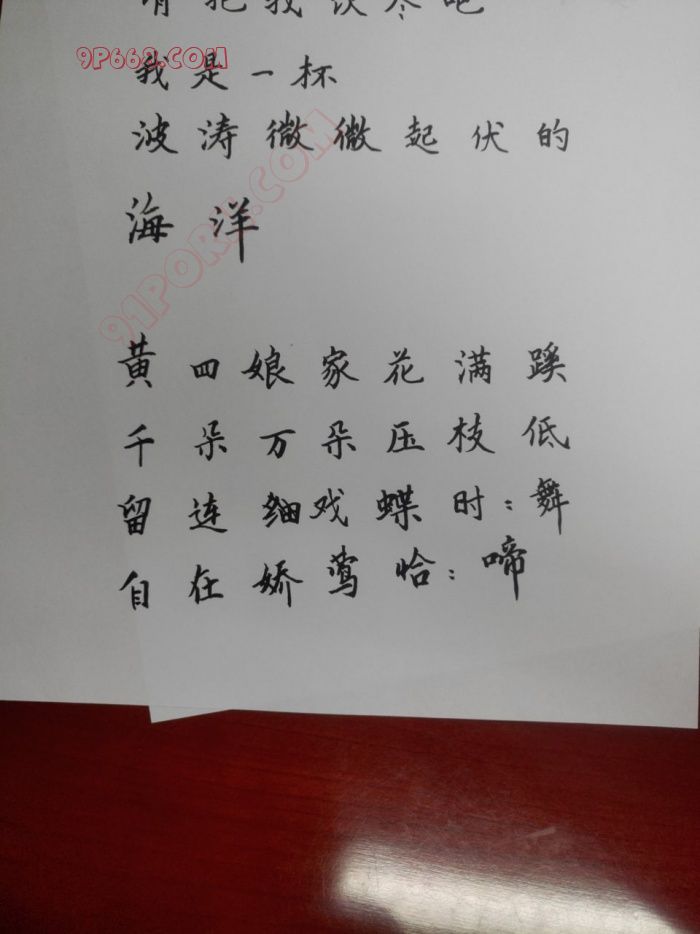 请把我饮尽吧
9P662.COM
我是一杯
波涛微微起伏的
海洋
91PORN.COM
黄四娘家花满蹊
千朵万朵压枝低
留连细戏蝶时:舞
自在娇莺恰:啼